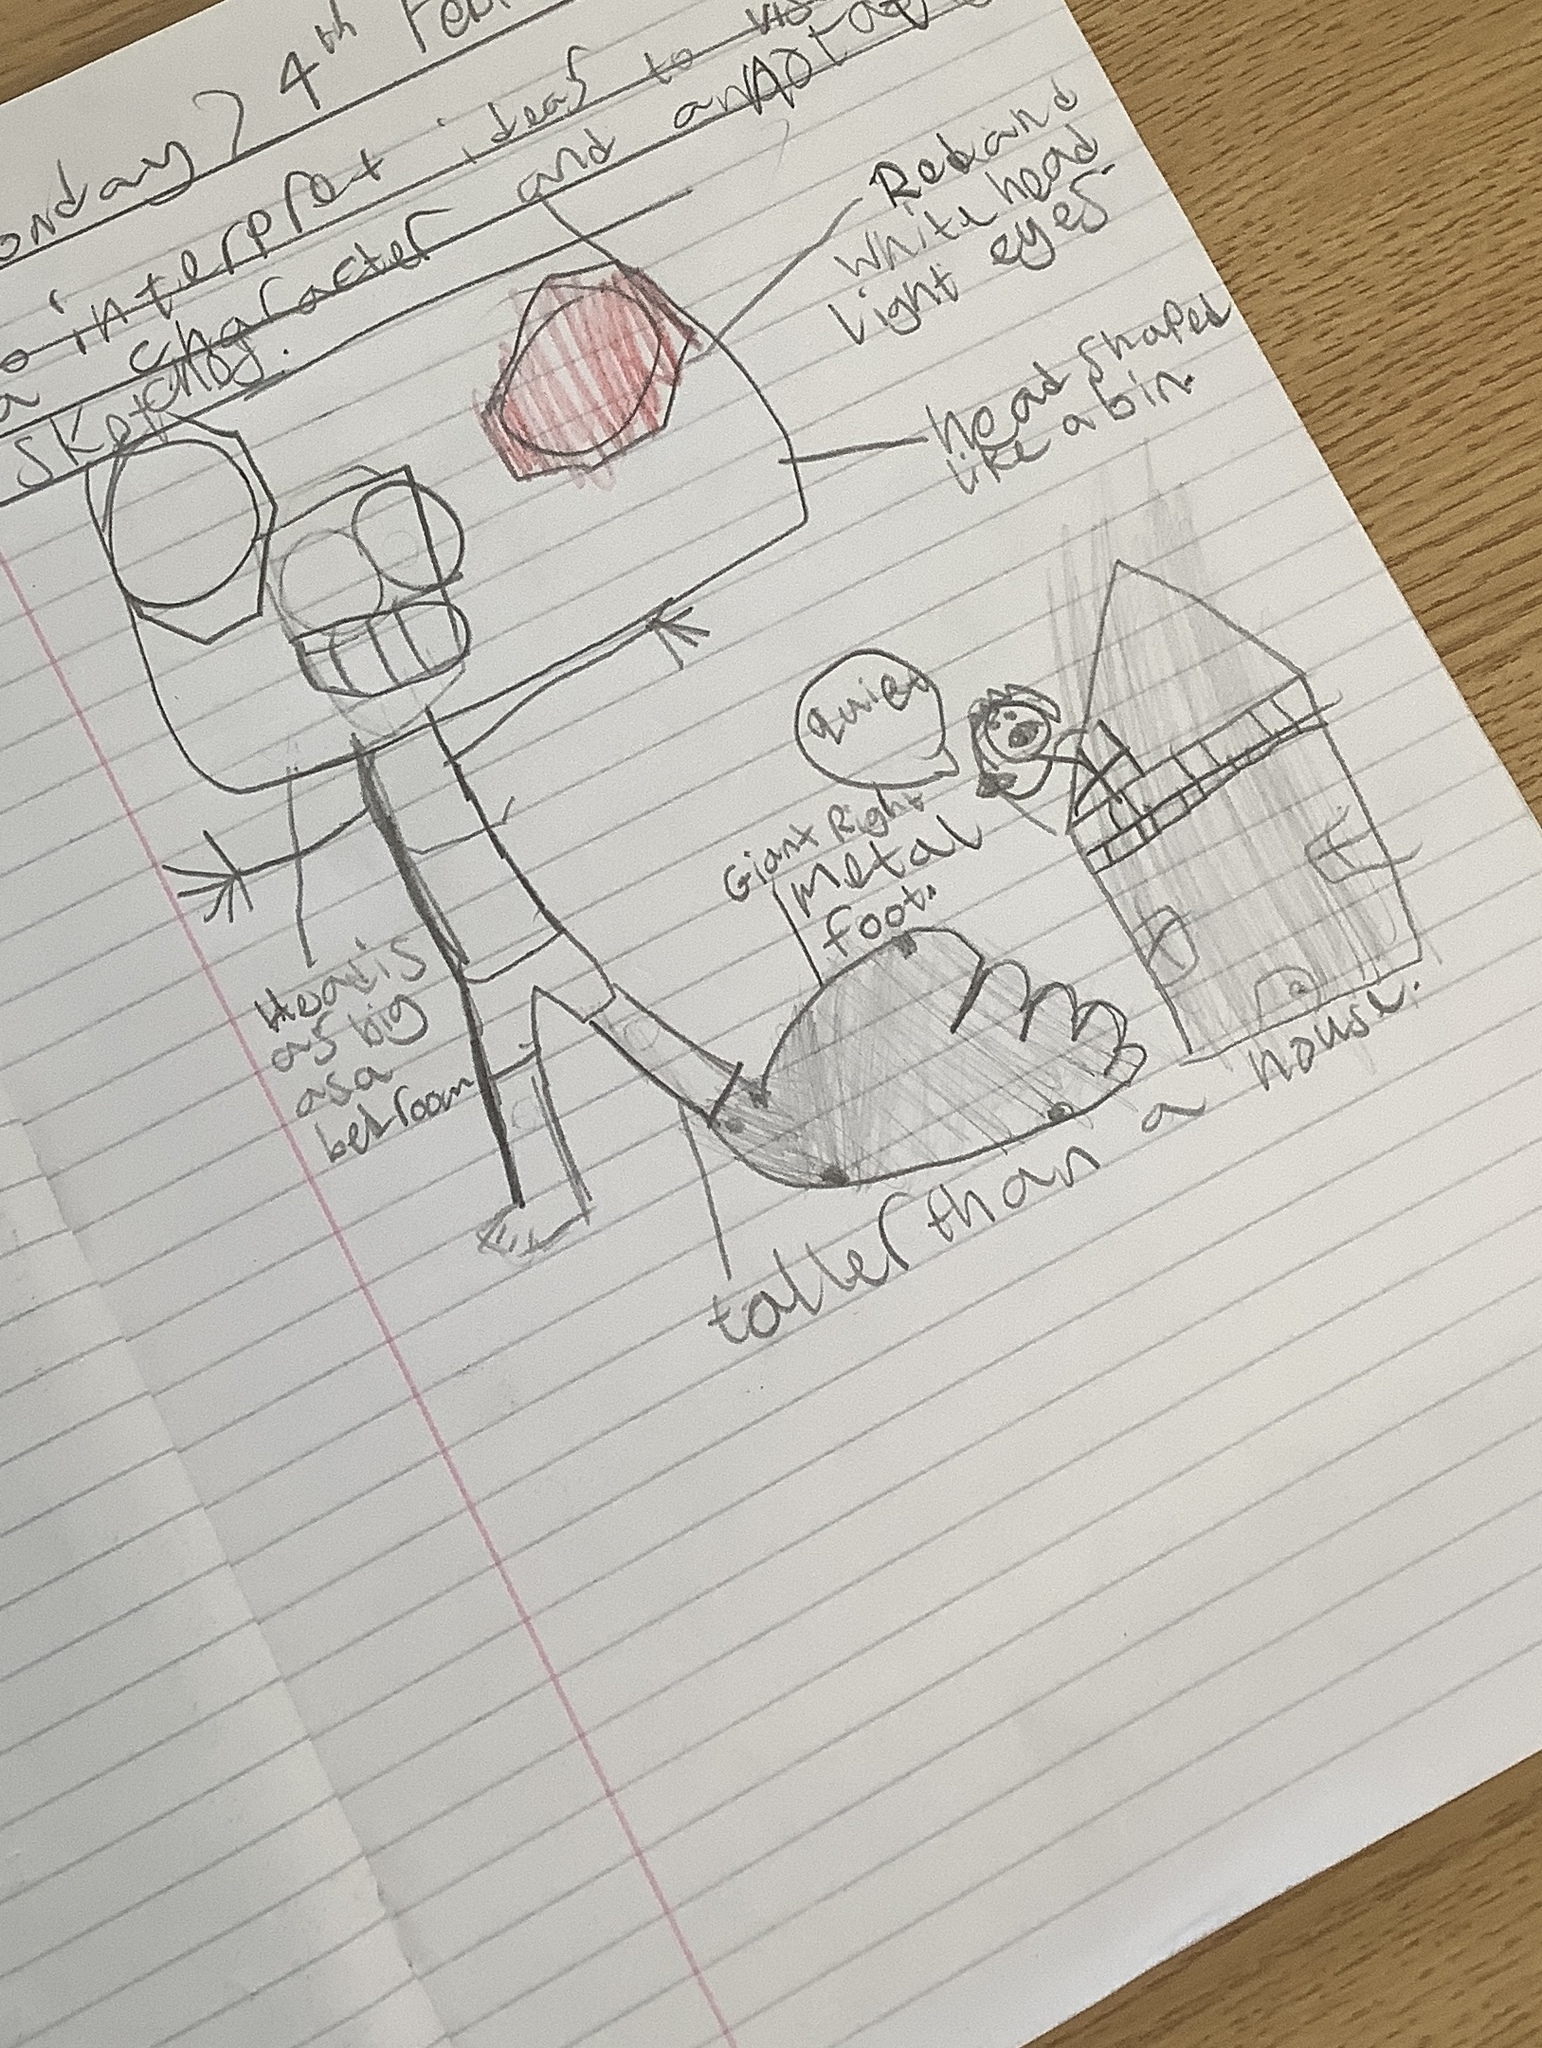 onday 24th Feb
o interpret ideas to vis
a character and annotate
sketches.
Red and
white head
light eyes.
head shaped
like a bin.
quiet
Giant Right
metal
foot.
Head is
as big
as a
bedroom
taller than a house.